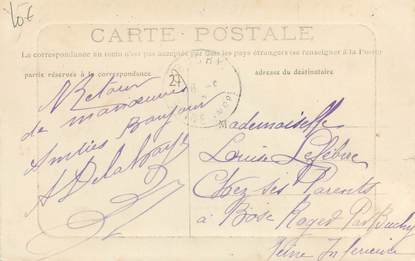 10€
CARTE POSTALE
La correspondance au recto n'est pas acceptée par tous les pays étrangers (se renseigner à la Poste)
partie réservée à la correspondance
adresse du destinataire
Retour
de manœuvres
Amitiés Bonjour
A Delahaye
Mademoiselle
Louise Lefebvre
Chez ses Parents
à Bosc Roger Par Buchy
Seine Inférieure